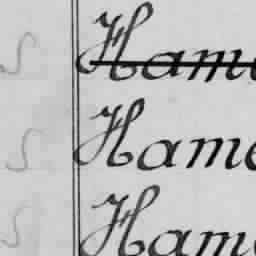 S Hame
S Hame
S Ham